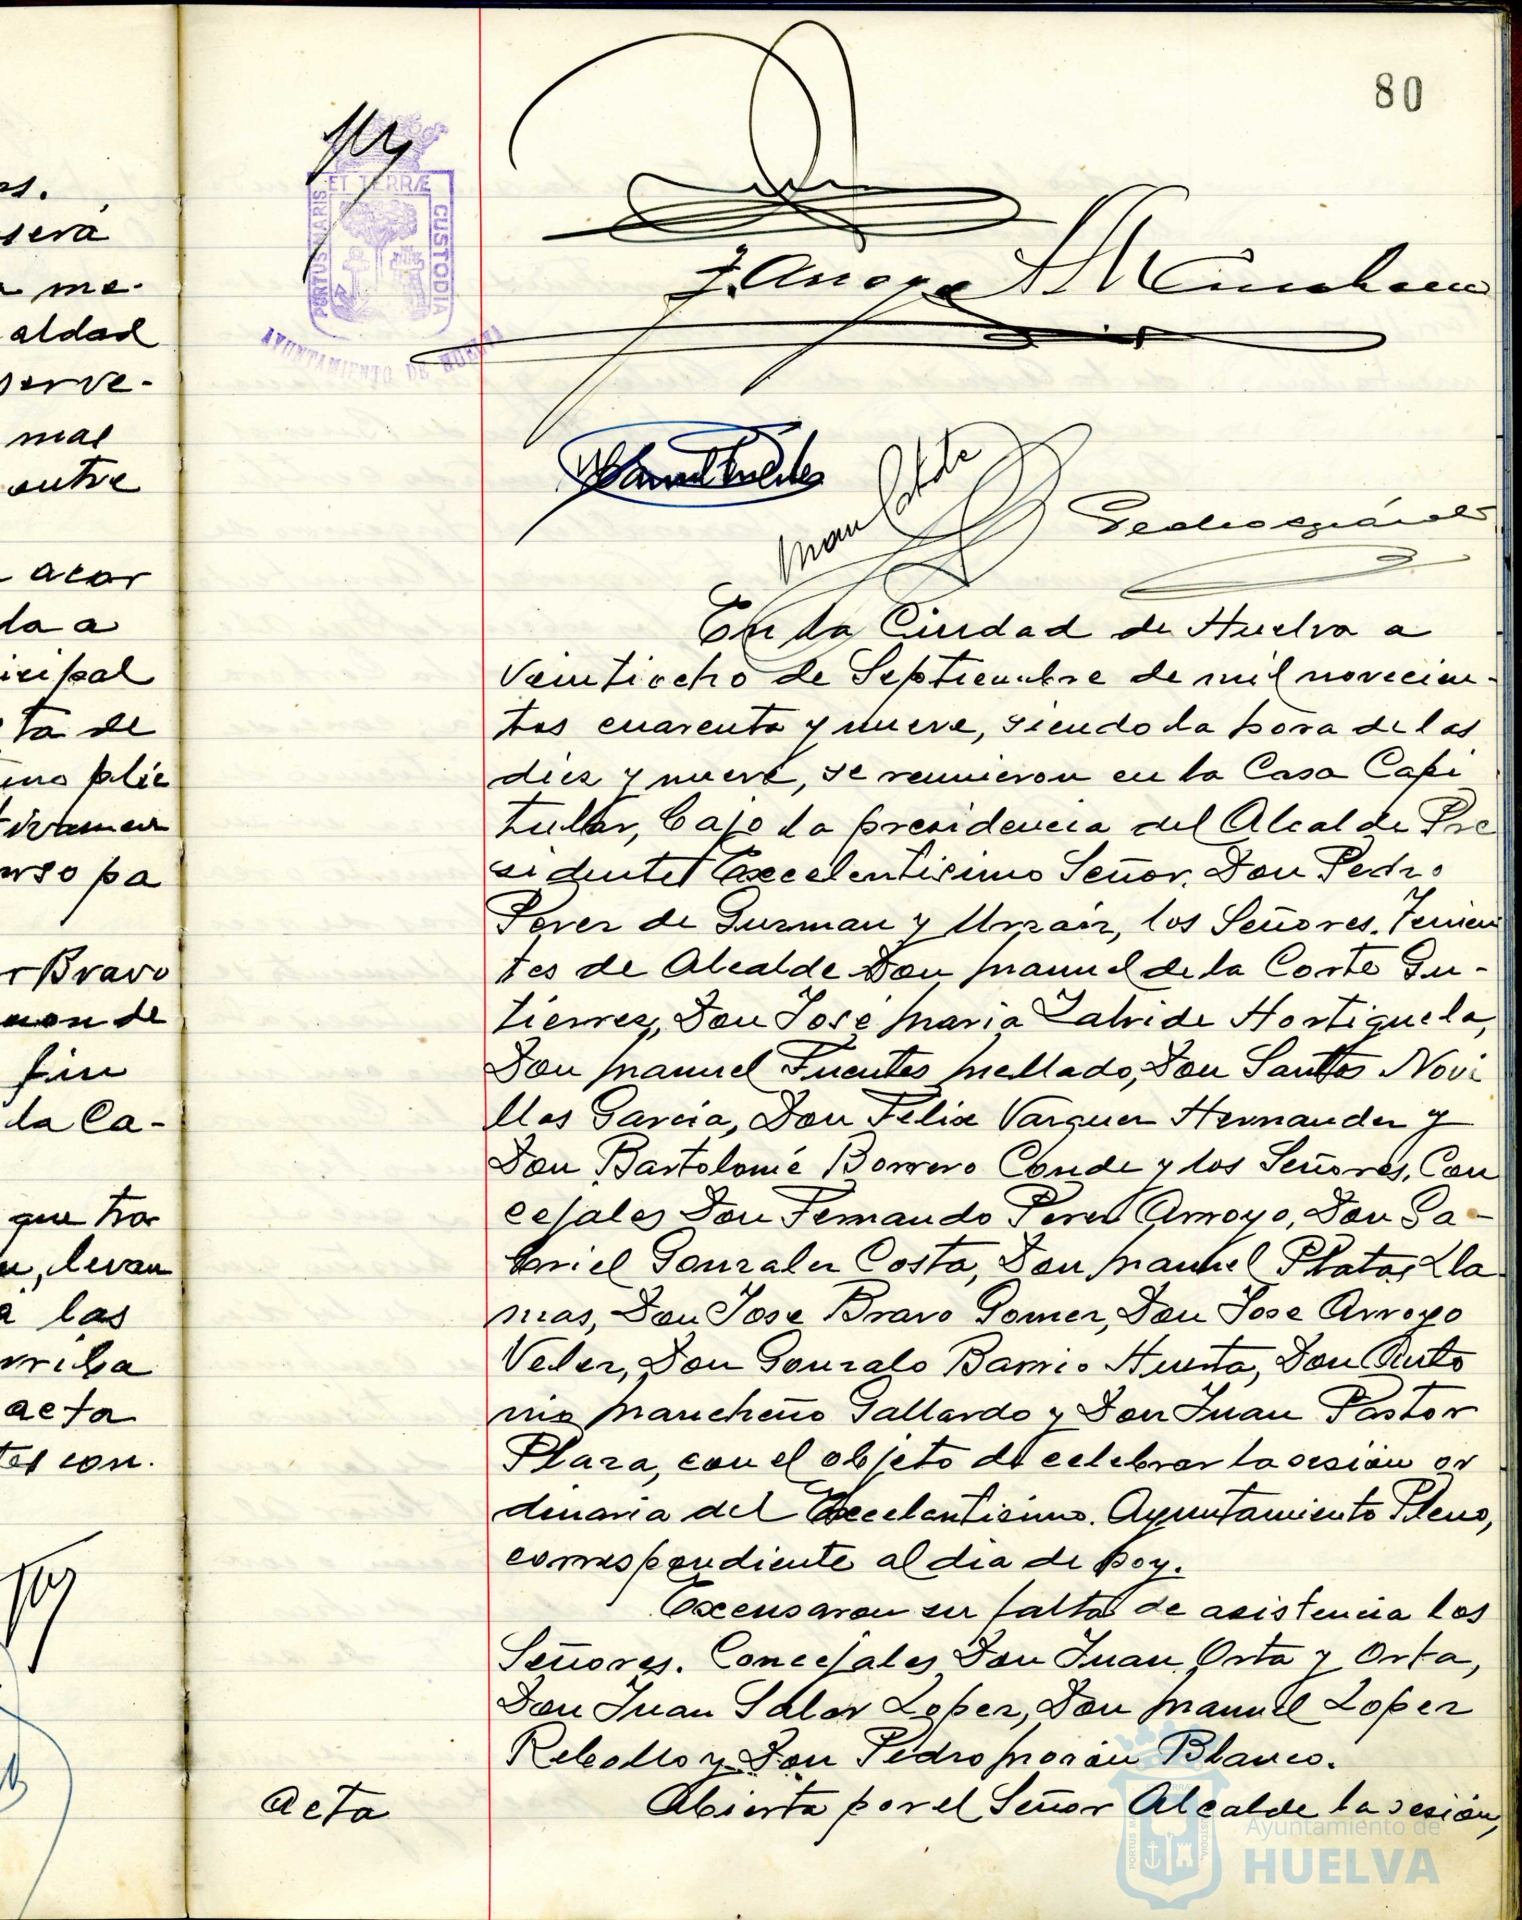 80
ET TERRÆ
PORTUS MARIS
CUSTODIA
AYUNTAMIENTO DE HUELVA
será
me-
aldad
serve-
mas
outre
acor
da a
icipal
ta de
plie
pa
r Bravo
de
fin
la Ca-
que tra
levan
a las
rriba
acta
con-
En la Ciudad de Huelva a
veintiocho de Septiembre de mil novecien-
tos cuarenta y nueve, siendo la hora de las
diez y nueve, se reunieron en la Casa Capi
tular, bajo la presidencia del Alcalde Pre
sidente Excelentisimo Señor. Don Pedro
Perez de Guzman y Urzaiz, los Señores. Tenien
tes de Alcalde Don Manuel de la Corte Gu-
tierrez, Don José Maria Zalvide Hortiguela,
Don Manuel Fuentes Mellado, Don Santos Novi
llos Garcia, Don Felix Vazquez Hernandez y
Don Bartolomé Borrero Conde y los Señores, Con
cejales Don Fernando Perez Arroyo, Don Ga-
briel Gonzalez Costa, Don Manuel Plata, Lla
mas, Don Jose Bravo Gomez, Don Jose Arroyo
Velez, Don Gonzalo Barrio Huerta, Don Anto
nio Mancheño Gallardo y Don Juan Pastor
Plaza, con el objeto de celebrar la sesión or
dinaria del Excelentisimo. Ayuntamiento Pleno,
correspondiente al dia de hoy.
Excusaron su falta de asistencia los
Señores. Concejales Don Juan Orta y Orta,
Don Juan Salas Lopez, Don Manuel Lopez
Rebollo y Don Pedro Morán Blanco.
Acta
Abierta por el Señor Alcalde la sesión,
Ayuntamiento de
HUELVA